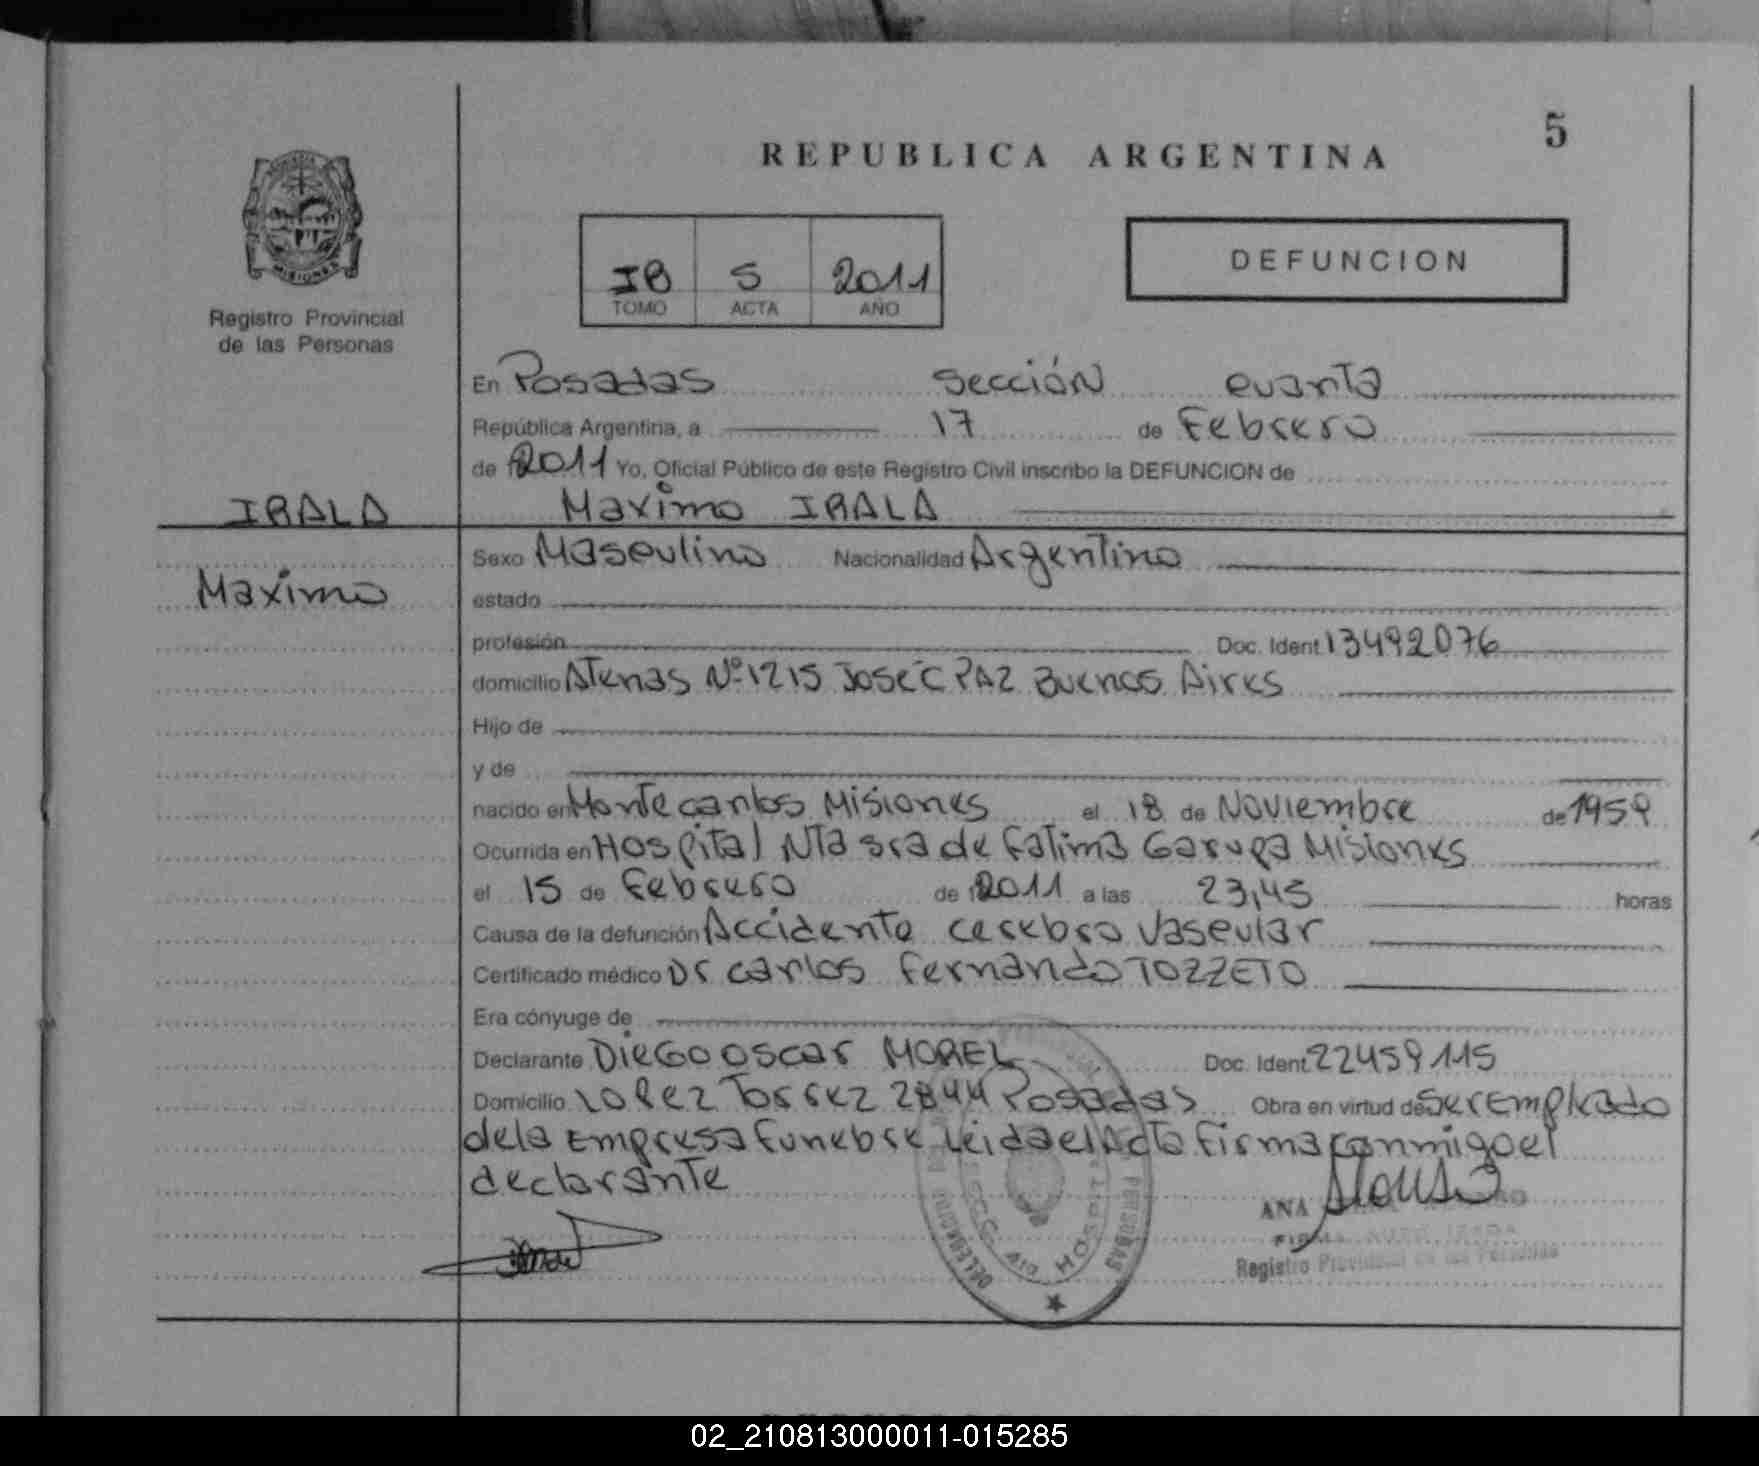 5
REPUBLICA ARGENTINA
MISIONES
Registro Provincial
de las Personas
IB 5 2011
TOMO ACTA AÑO
DEFUNCION
En Posadas Sección cuarta
República Argentina, a 17 de Febrero
de 2011 Yo, Oficial Público de este Registro Civil inscribo la DEFUNCION de
IRALA Maximo IRALA
Sexo Masculino Nacionalidad Argentino
Maximo
estado
profesión Doc. Ident. 13492076
domicilio Atenas Nº 1215 JOSE C PAZ Buenos Aires
Hijo de
y de
nacido en Montecarlos Misiones el 18 de Noviembre de 1959
Ocurrida en Hospital Nta sra de Fatima Garupa Misiones
el 15 de Febrero de 2011 a las 23,45 horas
Causa de la defunción Accidente cerebro vascular
Certificado médico Dr carlos Fernando TOZZETO
Era cónyuge de
Declarante DIEGO OSCAR MOREL Doc. Ident. 22459115
Domicilio LOPEZ Torrez 2844 Posadas Obra en virtud de ser Empleado
dela Empresa Funebre Leida el Acta firma conmigo el
declarante
ANA
Registro Provincial de las Personas
02_210813000011-015285